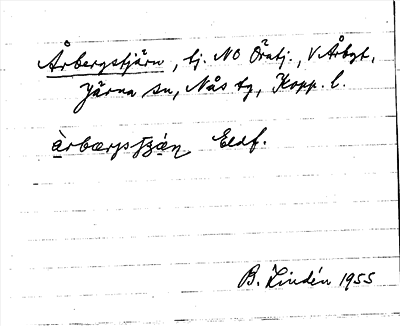 Årbergstjärn, tj. NO Öratj., V Årbgt,
Järna sn, Nås tg, Kopp. l.
Eldf.
B. Lindén 1955